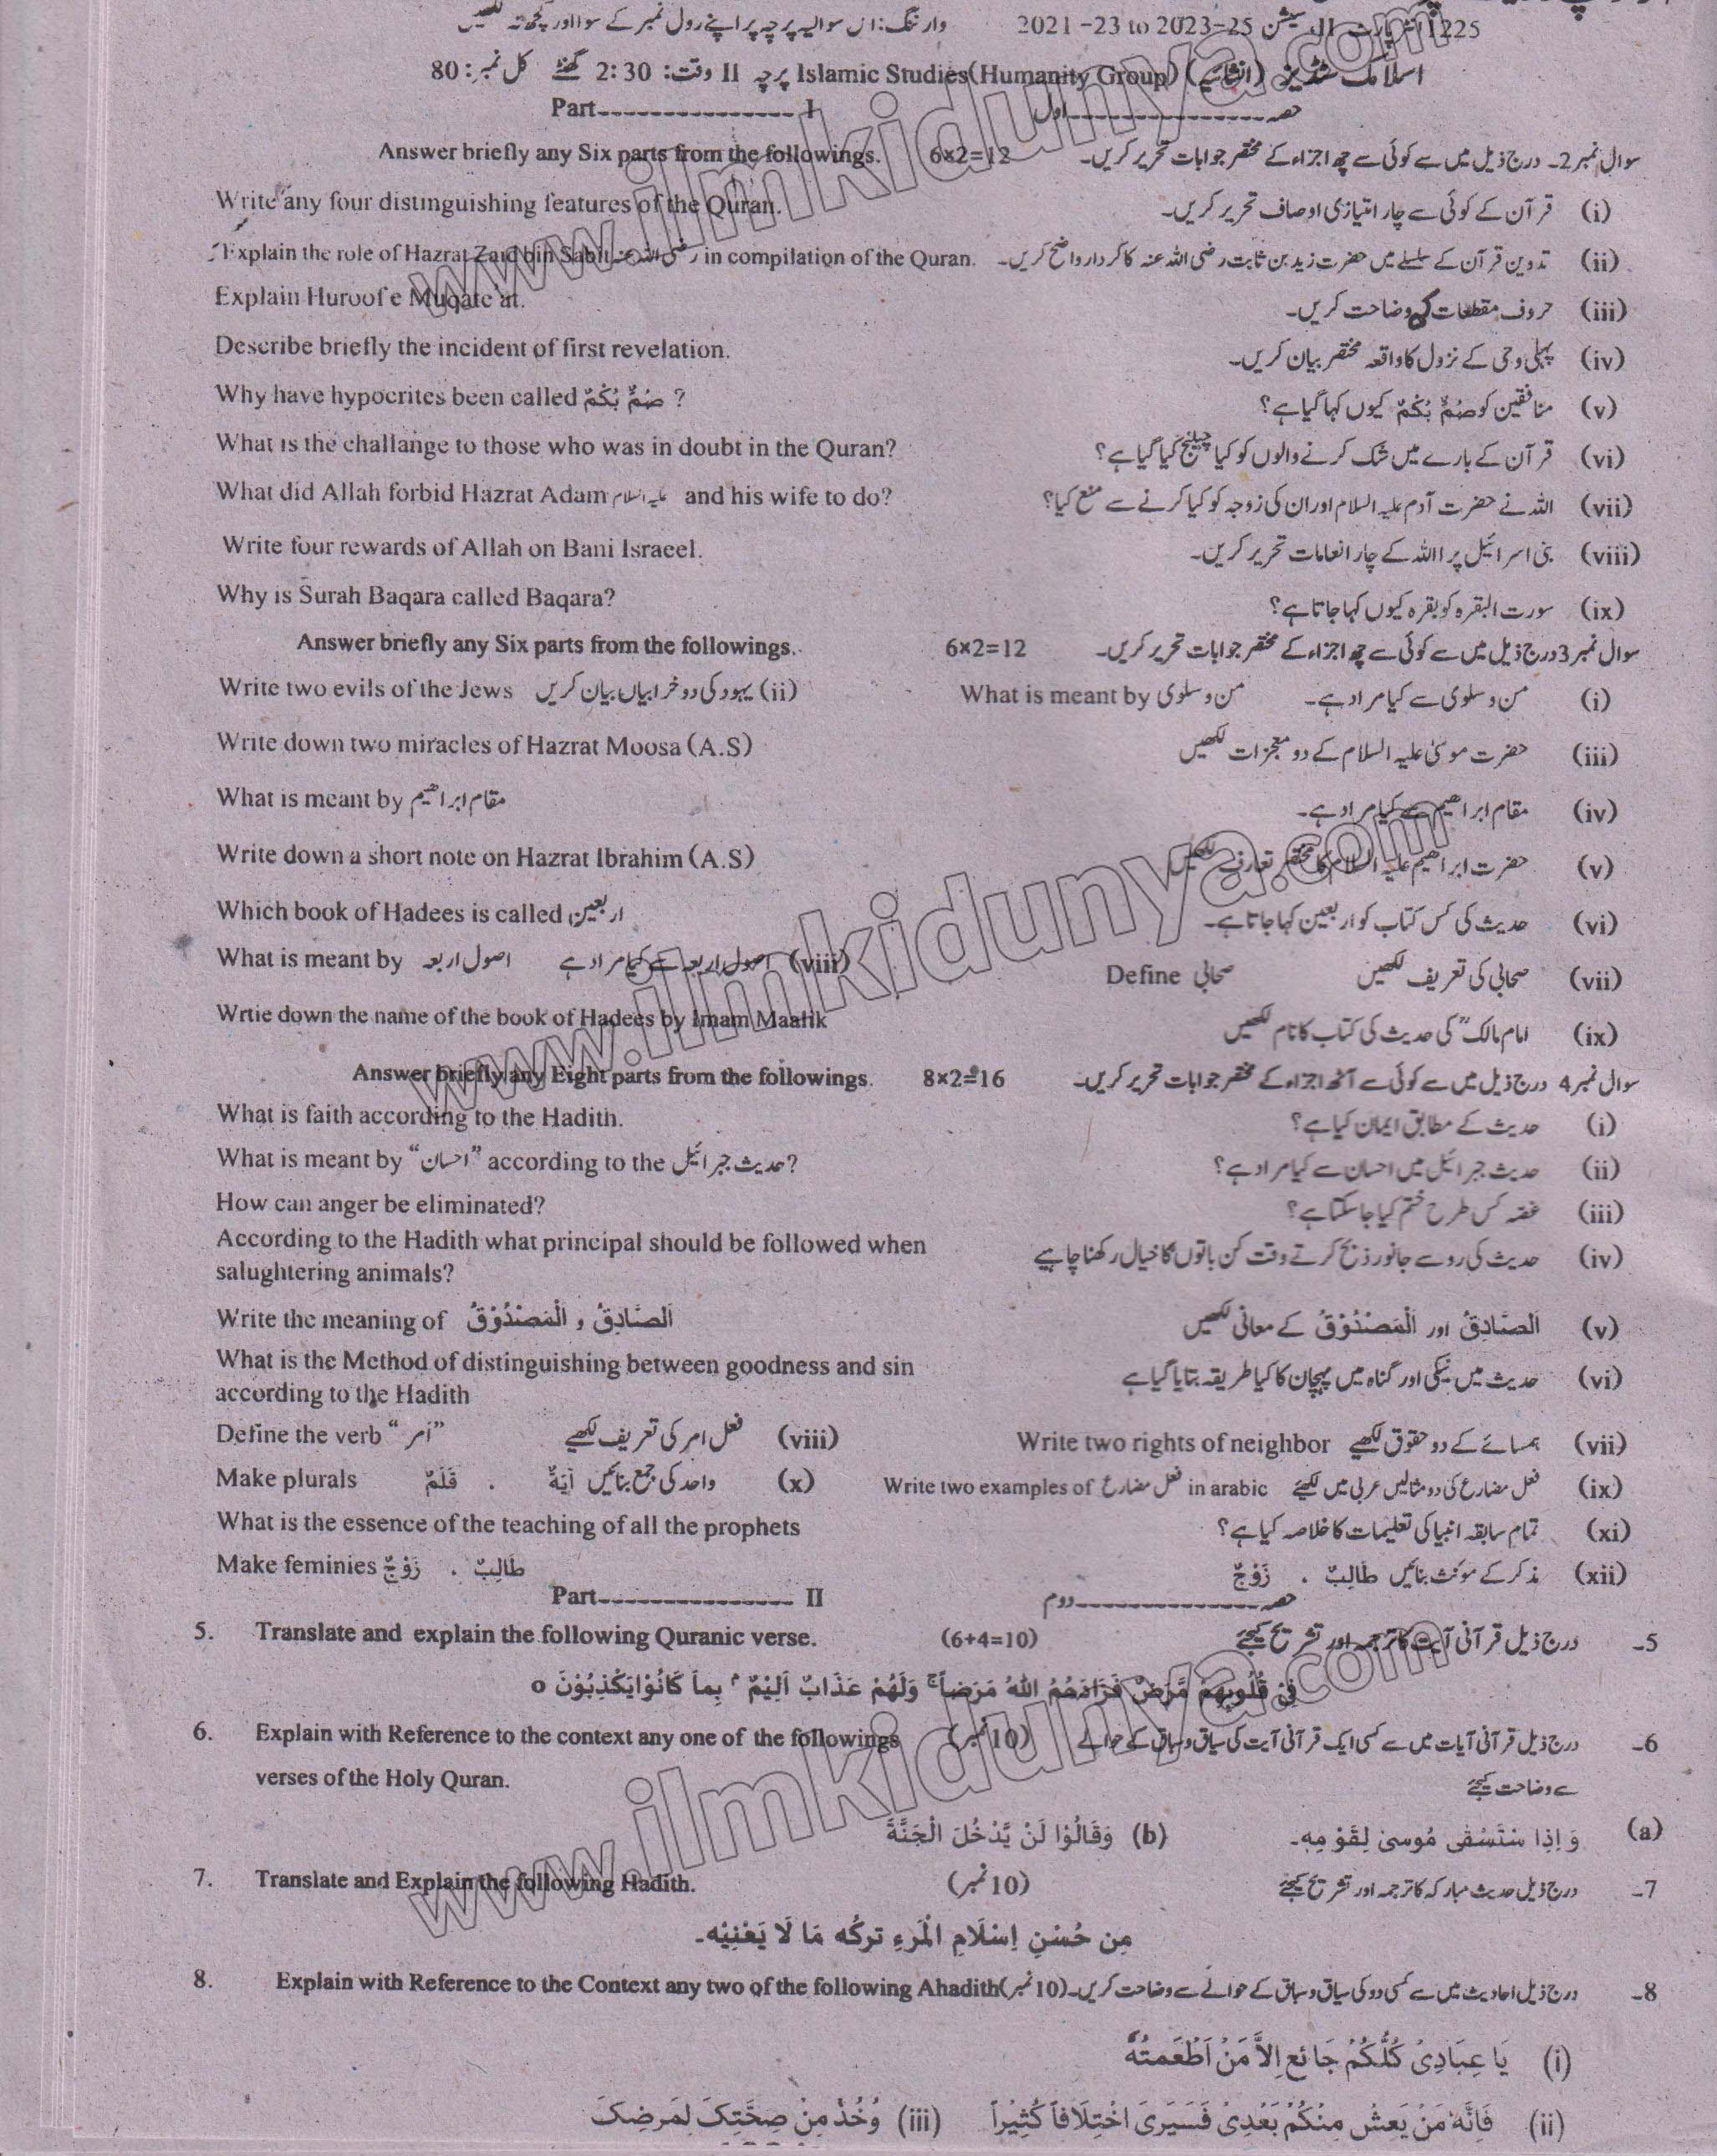 1225 انٹر پارٹ II سیشن 2021 -23 to 2023-25 وارننگ: اس سوالیہ پرچہ پر اپنے رول نمبر کے سوا اور کچھ نہ لکھیں
اسلامک سٹڈیز (انشائیہ) Islamic Studies(Humanity Group) پرچہ II وقت: 2:30 گھنٹے کل نمبر: 80
حصہ---------------اول Part--------------- I
سوال نمبر 2۔ درج ذیل میں سے کوئی سے چھ اجزاء کے مختصر جوابات تحریر کریں۔ 6×2=12 Answer briefly any Six parts from the followings.
(i) قرآن کے کوئی سے چار امتیازی اوصاف تحریر کریں۔ Write any four distinguishing features of the Quran.
(ii) تدوین قرآن کے سلسلے میں حضرت زید بن ثابت رضی اللہ عنہ کا کردار واضح کریں۔ Explain the role of Hazrat Zaid bin Sabit رضی اللہ عنہ in compilation of the Quran.
(iii) حروف مقطعات کی وضاحت کریں۔ Explain Huroof e Muqate at.
(iv) پہلی وحی کے نزول کا واقعہ مختصر بیان کریں۔ Describe briefly the incident of first revelation.
(v) منافقین کو صُمٌّ بُكْمٌ کیوں کہا گیا ہے؟ Why have hypocrites been called صُمٌّ بُكْمٌ ?
(vi) قرآن کے بارے میں شک کرنے والوں کو کیا چیلنج کیا گیا ہے؟ What is the challange to those who was in doubt in the Quran?
(vii) اللہ نے حضرت آدم علیہ السلام اور ان کی زوجہ کو کیا کرنے سے منع کیا؟ What did Allah forbid Hazrat Adam علیہ السلام and his wife to do?
(viii) بنی اسرائیل پر اللہ کے چار انعامات تحریر کریں۔ Write four rewards of Allah on Bani Israeel.
(ix) سورت البقرہ کو بقرہ کیوں کہا جاتا ہے؟ Why is Surah Baqara called Baqara?
سوال نمبر 3 درج ذیل میں سے کوئی سے چھ اجزاء کے مختصر جوابات تحریر کریں۔ 6×2=12 Answer briefly any Six parts from the followings.
(i) من و سلویٰ سے کیا مراد ہے۔ What is meant by من و سلوی (ii) یہود کی دو خرابیاں بیان کریں Write two evils of the Jews
(iii) حضرت موسیٰ علیہ السلام کے دو معجزات لکھیں Write down two miracles of Hazrat Moosa (A.S)
(iv) مقام ابراھیم سے کیا مراد ہے۔ What is meant by مقام ابراھیم
(v) حضرت ابراھیم علیہ السلام کا مختصر تعارف لکھیں Write down a short note on Hazrat Ibrahim (A.S)
(vi) حدیث کی کس کتاب کو اربعین کہا جاتا ہے۔ Which book of Hadees is called اربعین
(vii) صحابی کی تعریف لکھیں Define صحابی (viii) اصول اربعہ سے کیا مراد ہے What is meant by اصول اربعہ
(ix) امام مالک ؒ کی حدیث کی کتاب کا نام لکھیں Wrtie down the name of the book of Hadees by Imam Maalik
سوال نمبر 4 درج ذیل میں سے کوئی سے آٹھ اجزاء کے مختصر جوابات تحریر کریں۔ 8×2=16 Answer briefly any Eight parts from the followings.
(i) حدیث کے مطابق ایمان کیا ہے؟ What is faith according to the Hadith.
(ii) حدیث جبرائیل میں احسان سے کیا مراد ہے؟ What is meant by “احسان” according to the حدیث جبرائیل?
(iii) غصہ کس طرح ختم کیا جا سکتا ہے؟ How can anger be eliminated?
(iv) حدیث کی رو سے جانور ذبح کرتے وقت کن باتوں کا خیال رکھنا چاہیے According to the Hadith what principal should be followed when
salughtering animals?
(v) اَلصَّادِقُ اور اَلْمَصْدُوْقُ کے معانی لکھیں Write the meaning of اَلصَّادِقُ و الْمَصْدُوْقُ
(vi) حدیث میں نیکی اور گناہ میں پہچان کا کیا طریقہ بتایا گیا ہے What is the Method of distinguishing between goodness and sin
according to the Hadith
(vii) ہمسائے کے دو حقوق لکھیے Write two rights of neighbor (viii) فعل امر کی تعریف لکھیے Define the verb “اَمر”
(ix) فعل مضارع کی دو مثالیں عربی میں لکھیئے Write two examples of فعل مضارع in arabic (x) واحد کی جمع بنائیں اٰیَةٌ . قَلَمٌ Make plurals
(xi) تمام سابقہ انبیا کی تعلیمات کا خلاصہ کیا ہے؟ What is the essence of the teaching of all the prophets
(xii) مذکر کے مونث بنائیں طَالِبٌ . زَوْجٌ Make feminies طَالِبٌ . زَوْجٌ
حصہ---------------دوم Part--------------- II
5۔ درج ذیل قرآنی آیت کا ترجمہ اور تشریح کیجئے (6+4=10) 5. Translate and explain the following Quranic verse.
فِیْ قُلُوْبِهِمْ مَّرَضٌ فَزَادَهُمُ اللّٰهُ مَرَضاً ۚ وَلَهُمْ عَذَابٌ اَلِيْمٌ بِماَ كَانُوْا يَكْذِبُوْنَ o
6۔ درج ذیل قرآنی آیات میں سے کسی ایک قرآنی آیت کی سیاق و سباق کے حوالے (10نمبر) 6. Explain with Reference to the context any one of the followings
سے وضاحت کیجئے verses of the Holy Quran.
(a) وَ اِذِا سْتَسْقٰی مُوسیٰ لِقَوْ مِهٖ۔ (b) وَقَالُوْا لَنْ يَّدْخُلَ الْجَنَّةَ
7۔ درج ذیل حدیث مبارکہ کا ترجمہ اور تشریح کیجئے (10نمبر) 7. Translate and Explain the following Hadith.
مِن حُسْنِ اِسْلَامِ الْمَرءِ تركُه مَا لَا يَعْنِيْه۔
8۔ درج ذیل احادیث میں سے کسی دو کی سیاق و سباق کے حوالے سے وضاحت کریں۔(10نمبر) 8. Explain with Reference to the Context any two of the following Ahadith
(i) يَا عِبَادِیْ كُلُّكُمْ جَا ئع اِلاَّ مَنْ اَطْعَمتُهُ
(ii) فَاِنَّهُ مَنْ يَعِشْ مِنْكُمْ بَعْدِیْ فَسَيَریَ اخْتِلَافاً كَثِيْراً (iii) وَخُذْ مِنْ صِحَّتِكَ لِمَرضِكَ
www.ilmkidunya.com
www.ilmkidunya.com
www.ilmkidunya.com